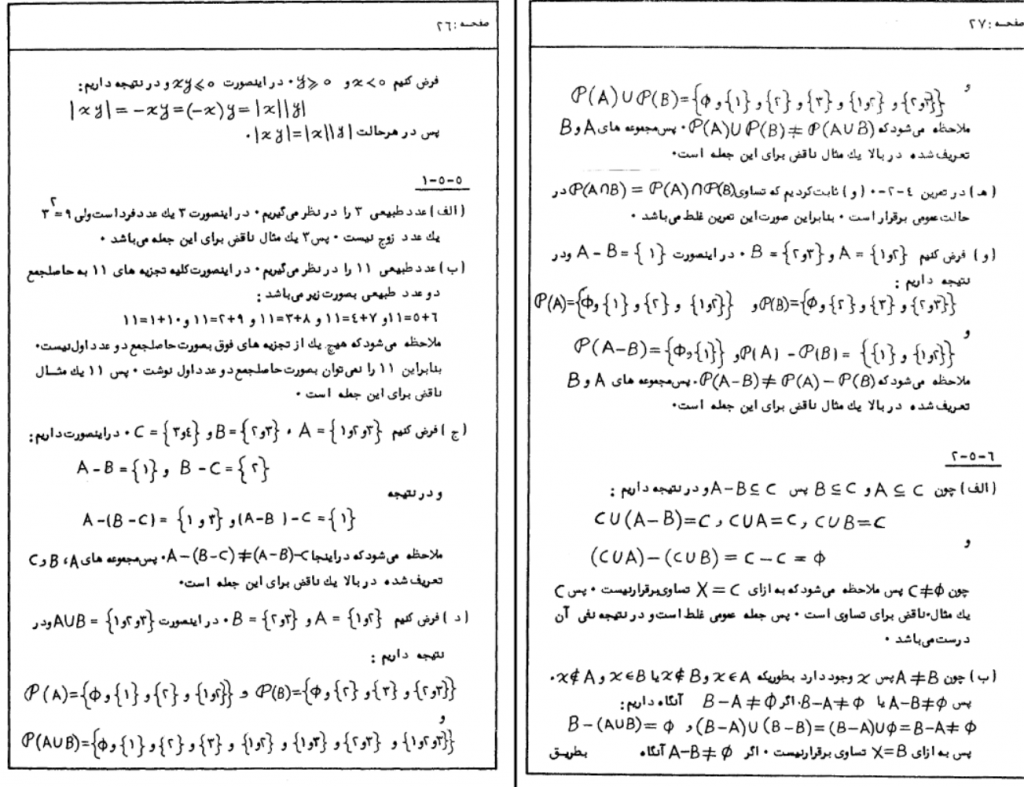 صفحه: ۲۶
فرض کنیم x < ۰ و y ⩾ ۰ ۰ در اینصورت xy ⩽ ۰ و در نتیجه داریم:
|xy| = -xy = (-x)y = |x||y|
پس در هرحالت |xy|=|x||y| ۰
۱-۵-۵
(الف) عدد طبیعی ۳ را در نظر می‌گیریم ۰ در اینصورت ۳ یک عدد فرد است ولی ۳^۲ = ۹
یک عدد زوج نیست ۰ پس ۳ یک مثال ناقض برای این جمله می‌باشد ۰
(ب) عدد طبیعی ۱۱ را در نظر می‌گیریم ۰ در اینصورت کلیه تجزیه های ۱۱ به حاصلجمع
دو عدد طبیعی بصورت زیر می‌باشد :
۱۱=۱+۱۰ و ۱۱=۲+۹ و ۱۱=۳+۸ و ۱۱=۴+۷ و ۱۱=۵+۶
ملاحظه می‌شود که هیچ یک از تجزیه های فوق بصورت حاصلجمع دو عدد اول نیست۰
بنابراین ۱۱ را نمی‌توان بصورت حاصلجمع دو عدد اول نوشت ۰ پس ۱۱ یک مثال
ناقض برای این جمله است ۰
(ج) فرض کنیم A = {۱و۲و۳} ۰ B = {۲و۳} و C = {۳و۴} ۰ دراینصورت داریم:
A-B = {۱} و B-C = {۲}
و در نتیجه
A-(B-C) = {۱ و ۳} و (A-B)-C = {۱}
ملاحظه می‌شود که در اینجا A-(B-C) ≠ (A-B)-C ۰ پس مجموعه های A، B و C
تعریف شده در بالا یک ناقض برای این جمله است۰
(د) فرض کنیم A = {۱و۲} و B = {۲و۳} ۰ در اینصورت A∪B = {۱و۲و۳} ودر
نتیجه داریم :
P(A)={ϕ و {۱} و {۲} و {۱و۲}} و P(B)={ϕ و {۲} و {۳} و {۲و۳}}
و
P(A∪B)={ϕ و {۱} و {۲} و {۳} و {۱و۲} و {۱و۳} و {۲و۳} و {۱و۲و۳}}
صفحه: ۲۷
و
P(A)∪P(B)={ϕ و {۱} و {۲} و {۳} و {۱و۲} و {۲و۳}}
ملاحظه می‌شود که P(A)∪P(B) ≠ P(A∪B) ۰ پس مجموعه های A و B
تعریف شده در بالا یک مثال ناقض برای این جمله است۰
(هـ) در تمرین ۴-۲-۰ (و) ثابت کردیم که تساوی P(A∩B) = P(A)∩P(B) در
حالت عمومی برقرار است ۰ بنابراین صورت این تمرین غلط می‌باشد ۰
(و) فرض کنیم A = {۱و۲} و B = {۲و۳} ۰ در اینصورت A-B = {۱} ودر
نتیجه داریم :
P(A)={ϕ و {۱} و {۲} و {۱و۲}} و P(B)={ϕ و {۲} و {۳} و {۲و۳}}
و
P(A-B)={ϕ و {۱}} و P(A) - P(B) = {{۱} و {۱و۲}}
ملاحظه می‌شود که P(A-B) ≠ P(A) - P(B) ۰ پس مجموعه های A و B
تعریف شده در بالا یک مثال ناقض برای این جمله است۰
۲-۵-۶
(الف) چون A ⊆ C و B ⊆ C پس A-B ⊆ C و در نتیجه داریم :
C∪(A-B)=C و C∪A=C و C∪B=C
و
(C∪A)-(C∪B) = C-C = ϕ
چون C≠ϕ پس ملاحظه می‌شود که به ازای X = C تساوی برقرارنیست ۰ پس C
یک مثال۰ناقض برای تساوی است ۰ پس جمله عمومی غلط است و در نتیجه نفی آن
درست می‌باشد ۰
(ب) چون A≠B پس x وجود دارد بطوریکه x∈A و x∉B یا x∈B و x∉A ۰
پس A-B≠ϕ یا B-A≠ϕ ۰ اگر B-A≠ϕ آنگاه داریم:
B-(A∪B)= ϕ و (B-A)∪(B-B)=(B-A)∪ϕ=B-A≠ϕ
پس به ازای X=B تساوی برقرارنیست ۰ اگر A-B≠ϕ آنگاه بطریق